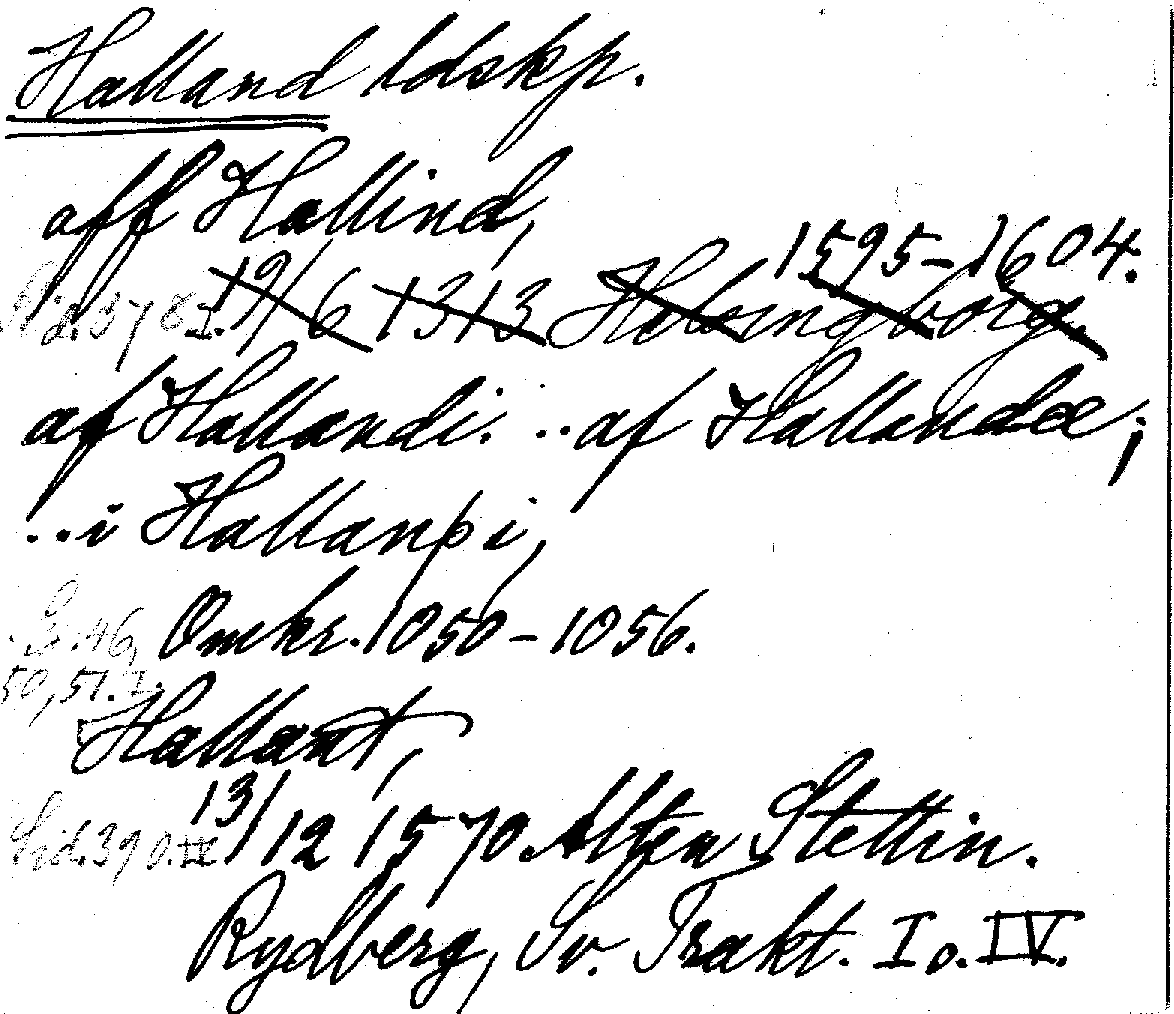 Halland ldskp.
aff Hallind,
1595-1604.
Sid. 378 I. 19/6 1313 Helsingborg.
af Hallandi. ..af Hallandæ;
..i Hallanþi,
S. 46, Omkr. 1050-1056.
50, 51. I.
Hallant,
Sid. 390. III 13/12 1570. Alten Stettin.
Rydberg, Sv. Trakt. I o. IV.